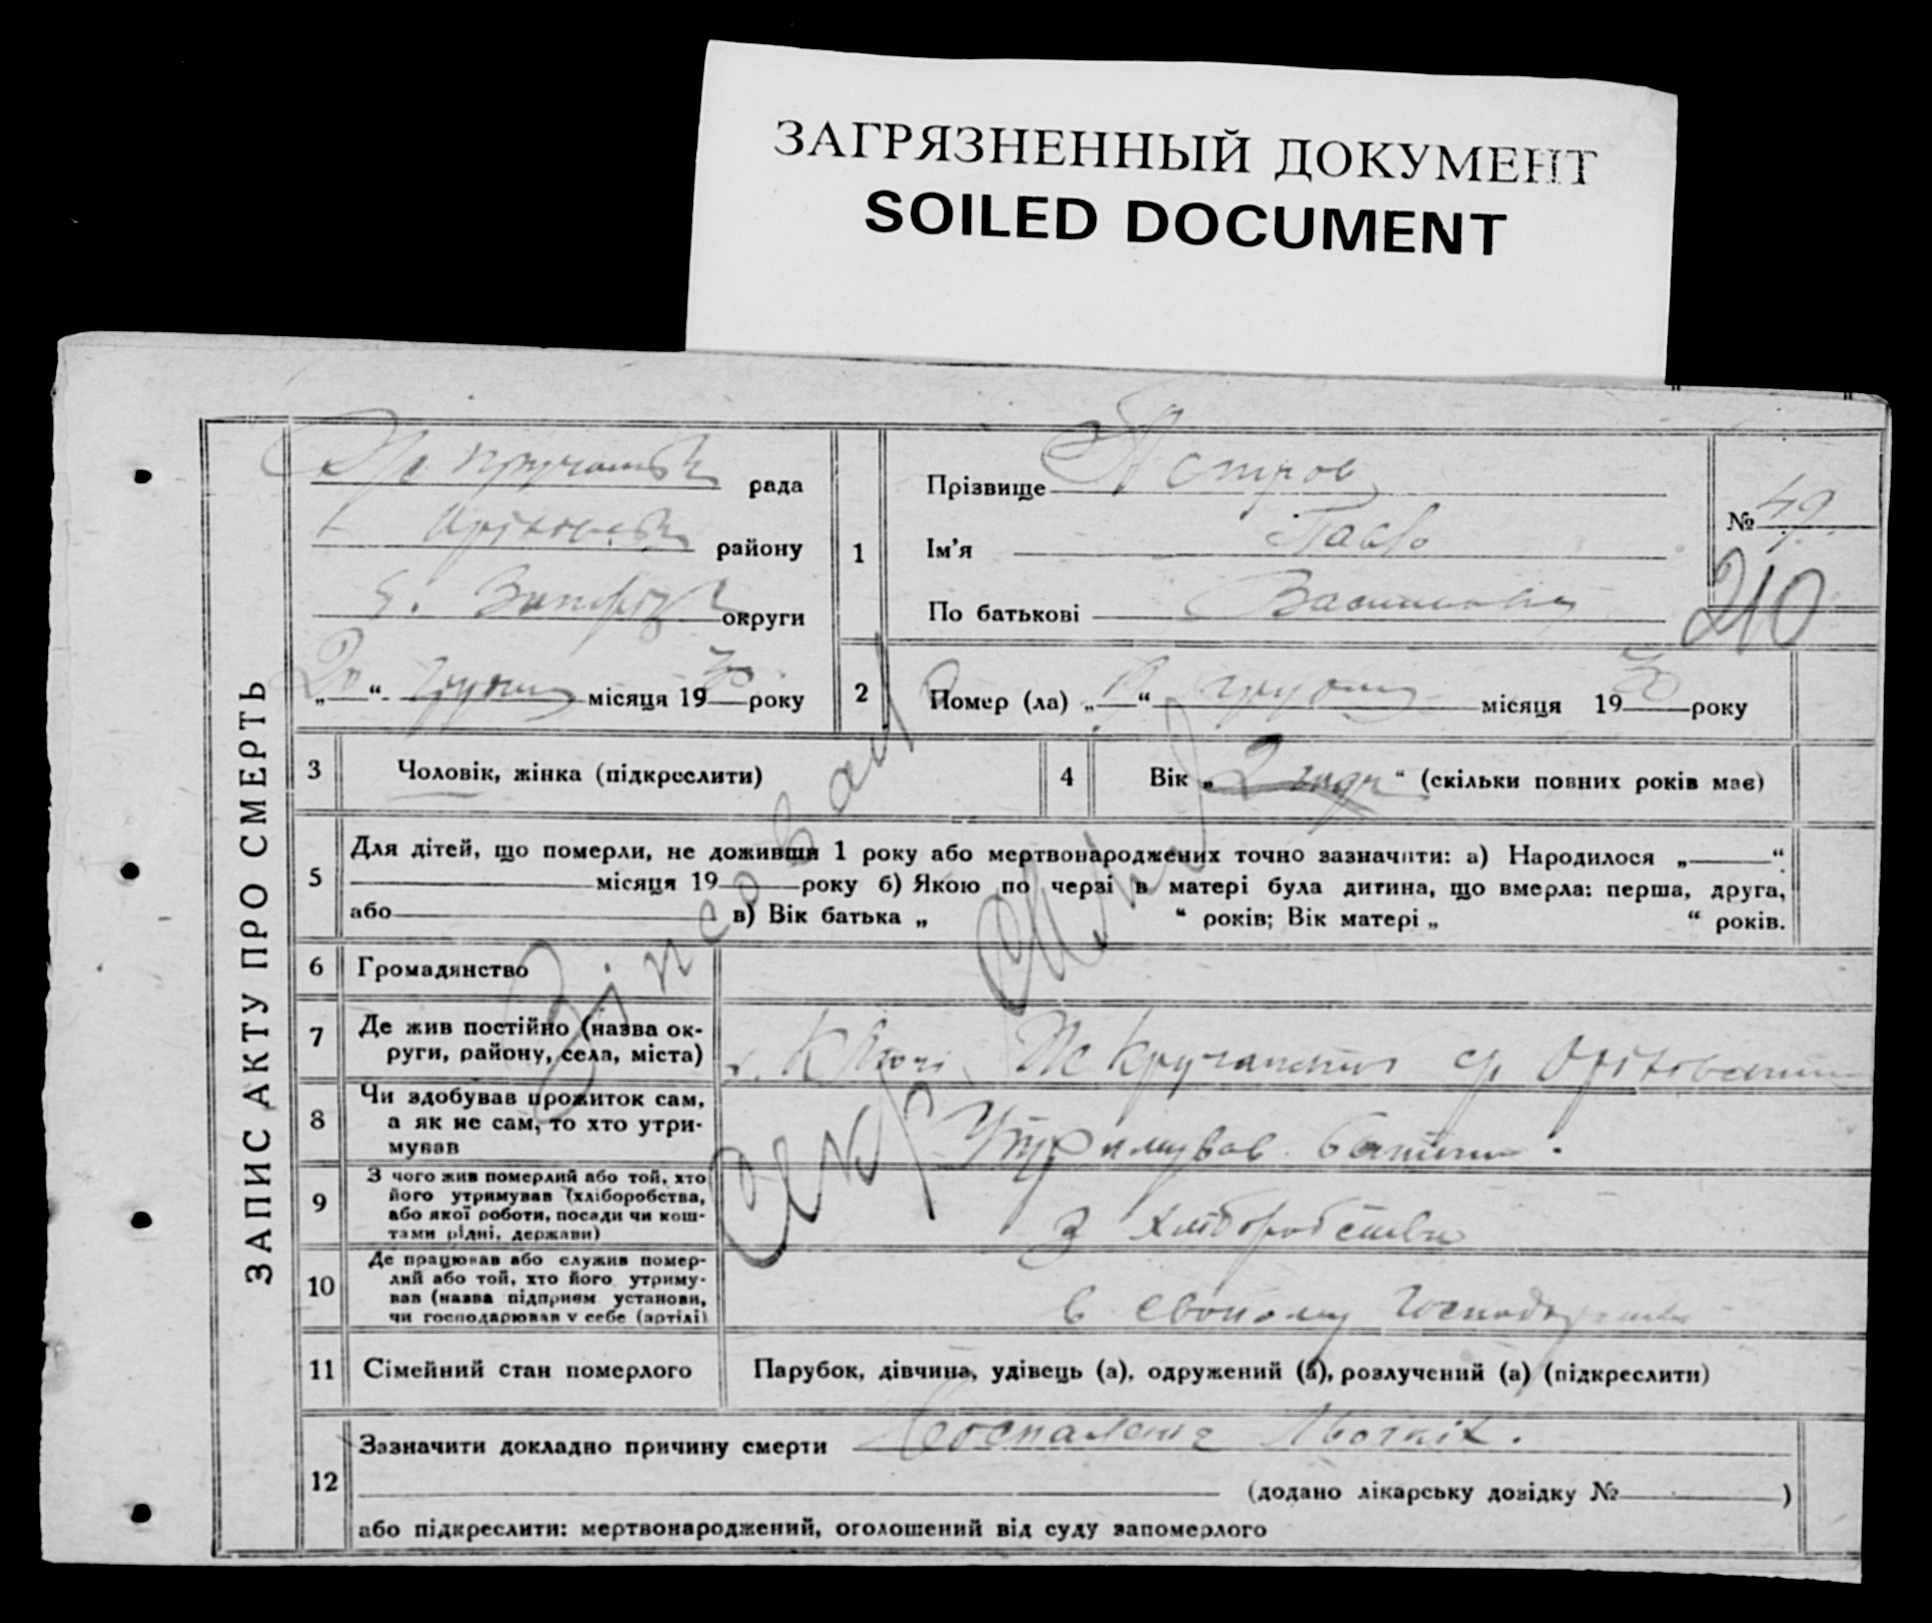 ЗАГРЯЗНЕННЫЙ ДОКУМЕНТ
SOILED DOCUMENT
ЗАПИС АКТУ ПРО СМЕРТЬ
рада
району
округи
„ “ грудня місяця 1930 року
1
Прізвище Петров
Ім'я Павло
По батькові Васильович
№ 49
210
2
Помер (ла) „ “ грудня місяця 1930 року
3
Чоловік, жінка (підкреслити)
4
Вік „2 годи“ (скільки повних років має)
5
Для дітей, що померли, не доживши 1 року або мертвонароджених точно зазначити: а) Народилося „ “
місяця 19 року б) Якою по черзі в матері була дитина, що вмерла: перша, друга,
або в) Вік батька „ “ років; Вік матері „ “ років.
6
Громадянство
7
Де жив постійно (назва ок-
руги, району, села, міста)
8
Чи здобував прожиток сам,
а як не сам, то хто утри-
мував
Утримував батько.
9
З чого жив померлий або той, хто
його утримував (хліборобства,
або якої роботи, посади чи кош-
тами рідні, держави)
З хліборобства
10
Де працював або служив помер-
лий або той, хто його утриму-
вав (назва підприєм установи,
чи господарював у себе (артілі)
в своєму господарстві
11
Сімейний стан померлого
Парубок, дівчина, удівець (а), одружений (а), розлучений (а) (підкреслити)
12
Зазначити докладно причину смерти Воспаление легких.
(додано лікарську довідку № )
або підкреслити: мертвонароджений, оголошений від суду запомерлого